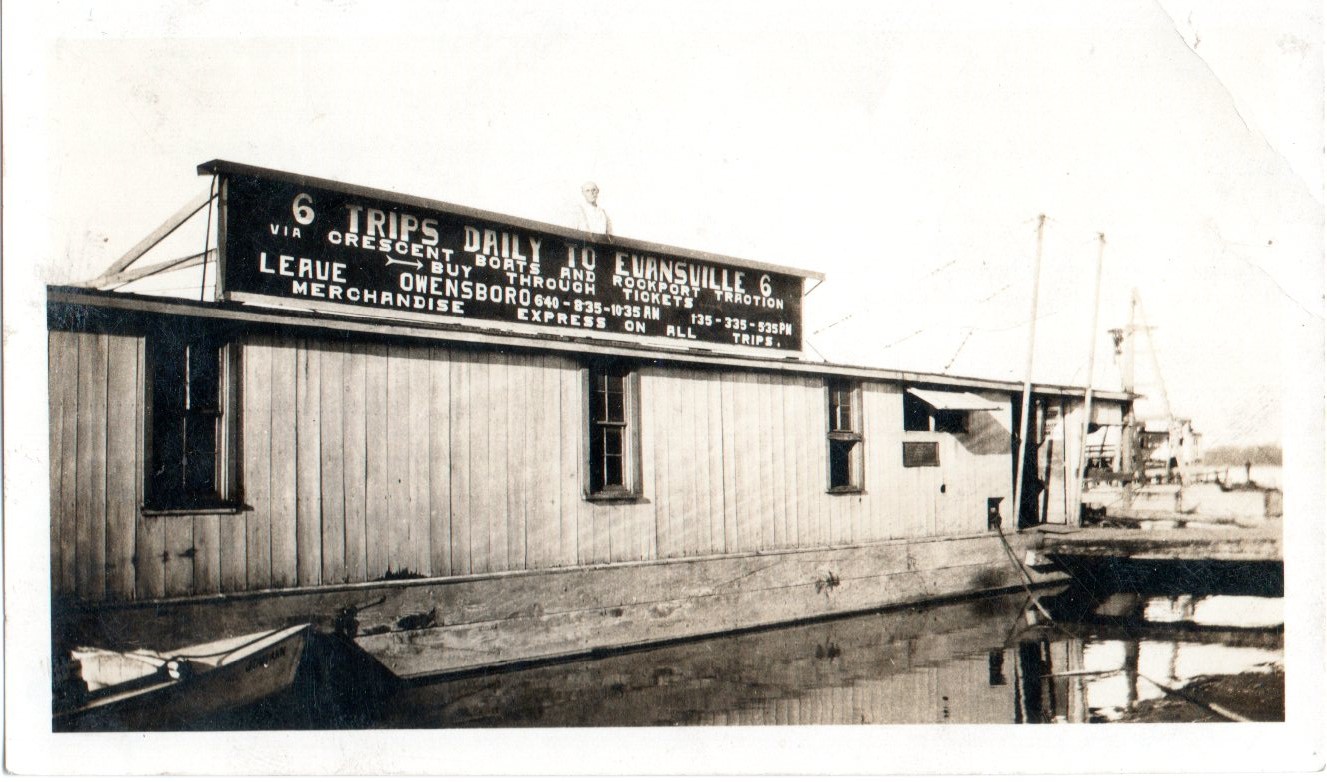 6 TRIPS DAILY TO EVANSVILLE 6
VIA CRESCENT BOATS AND ROCKPORT TRACTION
BUY THROUGH TICKETS
LEAVE OWENSBORO 640-835-1035 AM 135-335-535 PM
MERCHANDISE EXPRESS ON ALL TRIPS.